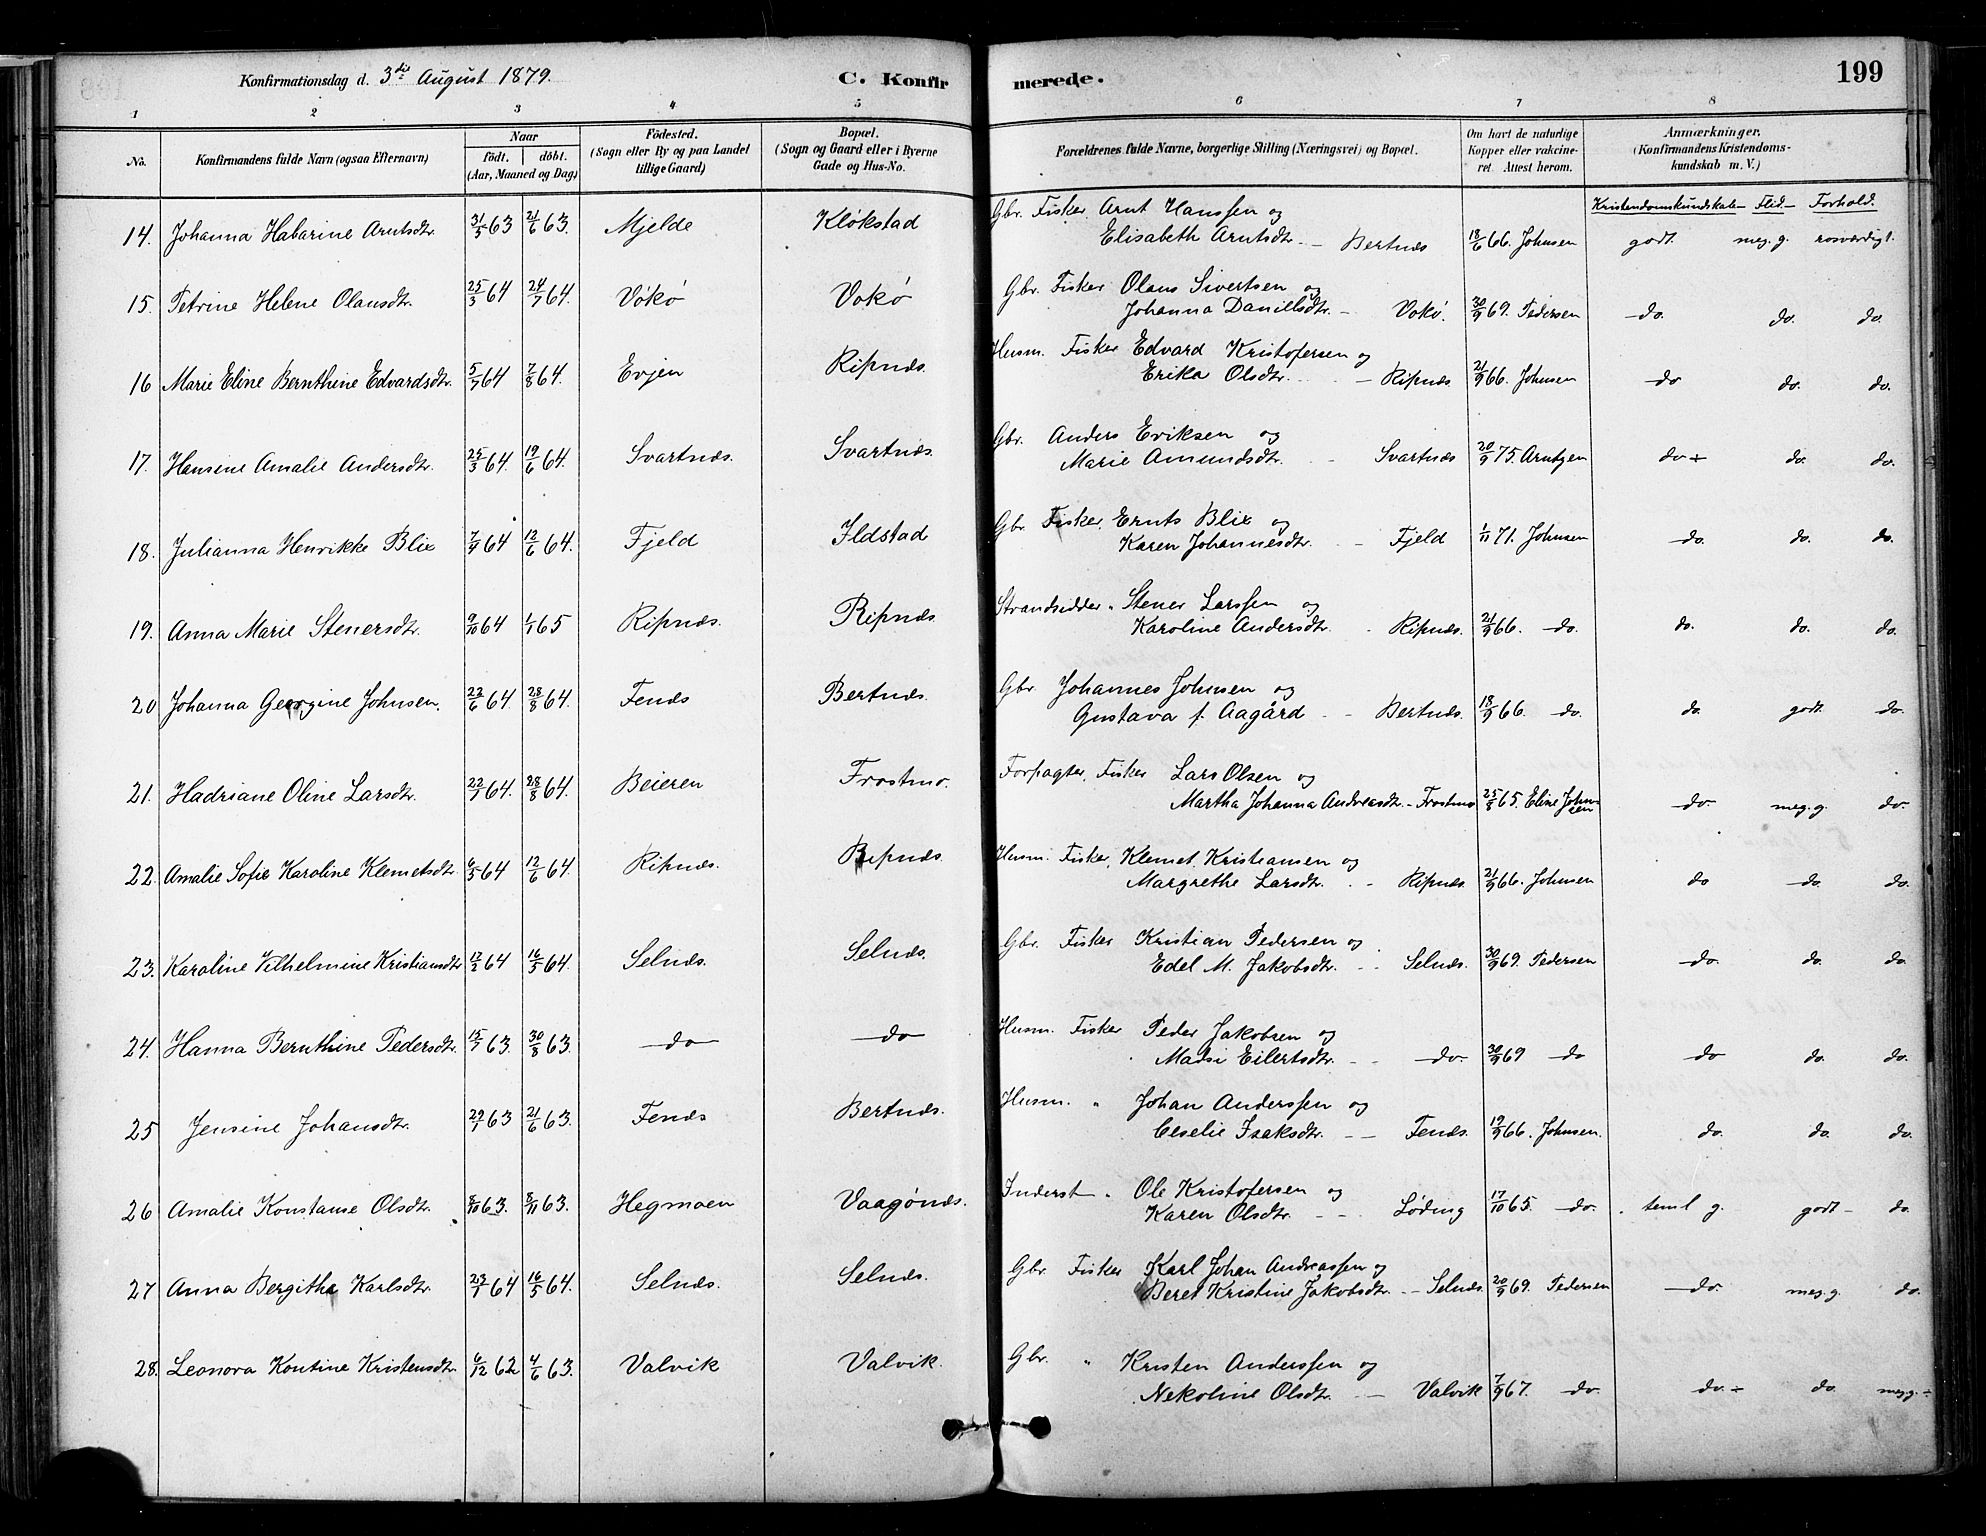 Konfirmationsdag d. 3die August 1879. C. Konfirmerede. 199
1 2 3 4 5 6 7 8
No. Konfirmandens fulde Navn (ogsaa Efternavn) Naar født. døbt. (Aar, Maaned og Dag) Fødested. (Sogn eller By og paa Landet tillige Gaard) Bopæl. (Sogn og Gaard eller i Byerne Gade og Hus-No. Forældrenes fulde Navne, borgerlige Stilling (Næringsvei) og Bopæl. Om havt de naturlige Kopper eller vakcineret. Attest herom. Anmærkninger. (Konfirmandens Kristendomskundskab m. V.)
Kristendomskundskab- Flid- Forhold.
14. Johanna Habarine Arntsdtr. 31/5 63 21/6 63. Mjelde Kløkstad Gbr. Fisker Arnt Hanssen og
Elisabeth Arntsdtr. - Bertnæs 18/6 66. Johnsen godt. meg. g. rosværdigt.
15. Petrine Helene Olausdtr. 25/3 64 24/7 64. Vókó Vokó Gbr. Fisker Olaus Sivertsen og
Johanna Danillsdtr. - Vokó. 30/9 69. Pedersen do. do. do.
16 Marie Eline Bernthine Edvardsdtr. 5/7 64 7/8 64. Evjen Ripnæs. Husm. Fisker Edvard Kristofersen og
Erika Olsdtr. - Ripnæs 21/9 66. Johnsen do do. do.
17. Hansine Amalie Andersdtr. 25/3 64. 19/6 64. Svartnæs. Svartnæs. Gbr. Anders Eriksen og
Marie Amundsdtr. - Svartnæs 20/9 75. Arntzen do + do. do.
18. Julianna Henrikke Blix 7/4 64 12/6 64. Fjeld Ildstad Gbr. Fisker. Ernts Blix og
Karen Johannesdtr. - Fjeld 1/11 71. Johnsen do. do. do.
19. Anna Marie Stenersdtr. 9/10 64 1/1 65 Ripnæs. Ripnæs. Strandsidder " Stener Larssen og
Karoline Andersdtr. - Ripnæs. 21/9 66. do. do. do. do.
20 Johanna Georgine Johnsen. 22/6 64. 28/8 64. Fenæs Bertnæs. Gbr. Johannes Johnsen og
Gustava f. Aagård - Bertnæs. 18/9 66. do. do. godt. do.
21. Hadriane Oline Larsdtr. 22/7 64. 28/8 64. Beieren Frostmo. Forpagter. Fisker Lars Olsen og
Martha Johanna Andreasdtr. - Frostmo 25/8 65. Eline Johnsen do. meg. g. do.
22. Amalie Sofie Karoline Klemetsdtr. 6/5 64 12/6 64. Ripnæs. Ripnæs. Husm. Fisker. Klemet Kristiansen og
Margrethe Larsdtr. - Ripnæs. 21/9 66. Johnsen do do. do.
23. Karoline Vilhelmine Kristiansdtr 12/2 64 16/5 64. Selnæs. Selnæs. Gbr. Fisker Kristian Pedersen og
Edel M. Jakobsdtr. - Selnæs. 30/9 69. Pedersen do. do. do.
24. Hanna Bernthine Pedersdtr. 15/7 63. 30/8 63. do do Husm. Fisker Peder Jakobsen og
Madsi Eilertsdtr. - do. 30/9 69 do do do. do.
25 Jensine Johansdtr. 29/1 63 21/6 63. Fenæs Bertnæs. Husm. " Johan Anderssen og
Ceselie Isaksdtr. - Fenæs. 19/9 66. Johnsen. do. do. do.
26 Amalie Konstanse Olsdtr. 8/10 63. 8/11 63. Hegmoen Vaagónæs. Inderst " Ole Kristofersen og
Karen Olsdtr. - Løding 17/10 65. do. teml g. godt - do.
27 Anna Bergitha Karlsdtr. 23/1 64 16/5 64. Selnæs. Selnæs. Gbr. Fisker Karl Johan Andreassen og
Beret Kristine Jakobsdtr. - Selnæs. 20/9 69. Pedersen do. meg. g. do.
28. Leonora Kontine Kristensdtr. 6/12 62 4/6 63. Valvik Valvik. Gbr. " Kristen Anderssen og
Nekoline Olsdtr. - Valvik 7/9 67. do. do. ÷ do. meg g. ÷